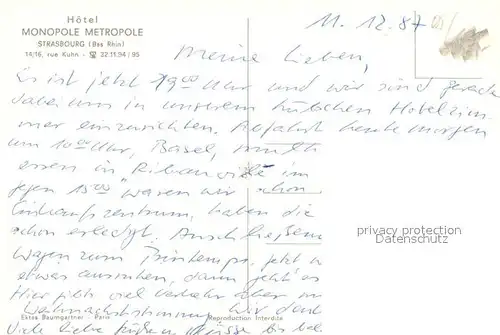 Hôtel
MONOPOLE METROPOLE
STRASBOURG (Bas Rhin)
14/16, rue Kuhn - ☎ 22.11.94 / 95
11. 12. 87
Meine Lieben,
Es ist jetzt 19⁰⁰ Uhr und wir sind gerade
dabei uns in unserem hübschen Hotelzim-
mer einzurichten. Abfahrt heute morgen
um 10⁰⁰ Uhr, Basel,
essen in im
gegen 15⁰⁰ waren wir schon
Einkaufszentrum, haben die
schon erledigt. Anschließend
wagen zum Printemps, jetzt
etwas ausruhen, dann geht es
Hier gibt viel Verkehr aber
Weihnachtsstimmung wird
Viele liebe Grüße bis
privacy protection
Datenschutz
Ektas Baumgartner - Paris
Reproduction Interdite